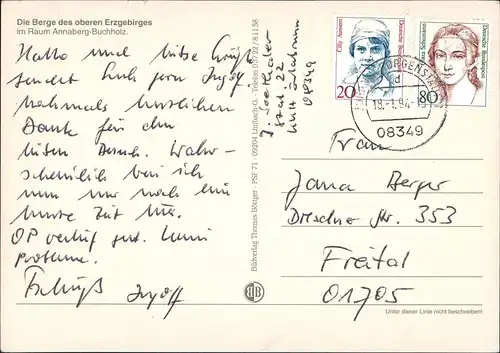 Die Berge des oberen Erzgebirges
im Raum Annaberg-Buchholz.
Hallo und liebe Grüße
sendet Euch gern Ingolf
nochmals herzlichen
Dank für den
lieben Besuch. Wahr-
scheinlich bei ich
nun nur noch eine
kurze Zeit hier.
OP verlief gut. Keine
Probleme.
Tschüß Ingolf
Bildverlag Thomas Böttger · PSF 71 · 09204 Limbach-O. · Telefon 0 37 22 / 8 11 58
08349
Cilly Aussem
Deutsche Bundespost
20
Deutsche Bundespost
80
19.-1.94
08349
Frau
Jana Berger
Dresdner Str. 353
Freital
01705
Unter dieser Linie nicht beschreiben!